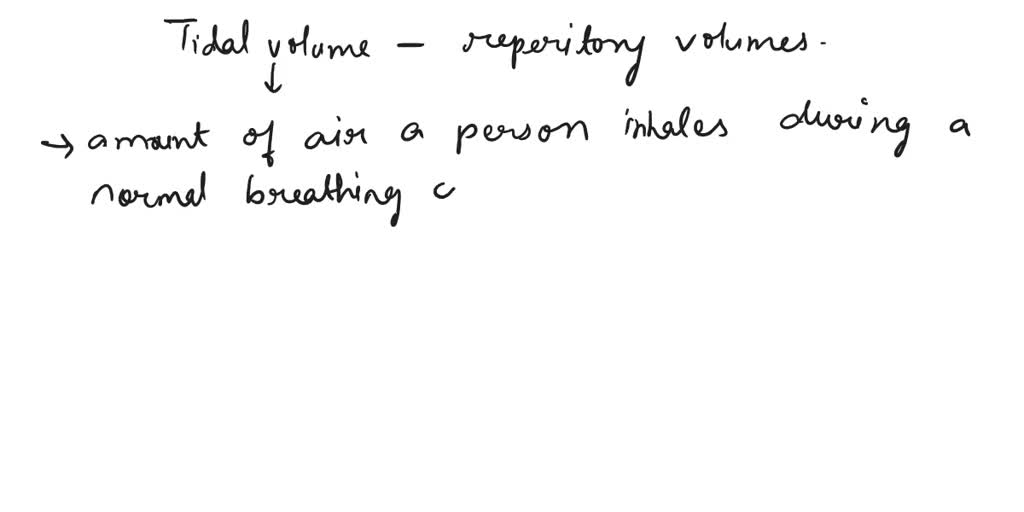 Tidal volume – reperitory volumes.
↓
→ amount of air a person inhales during a
normal breathing c